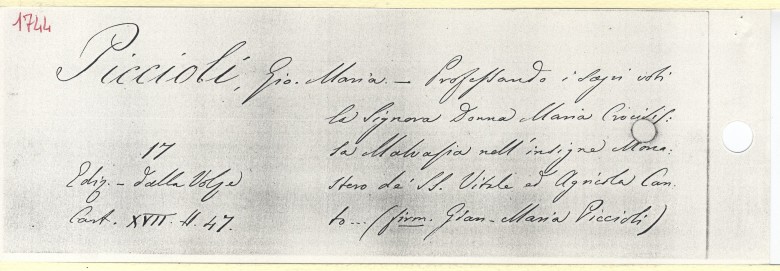 1744
Piccioli, Gio. Maria. — Professando i sagri voti
la Signora Donna Maria Crocifis:
sa Malvasia nell'insigne Mona:
stero de' SS. Vitale ed Agricola Can:
to... (firm. Gian-Maria Piccioli)
17
Ediz. - dalla Volpe
Cart. XVII. H. 47.